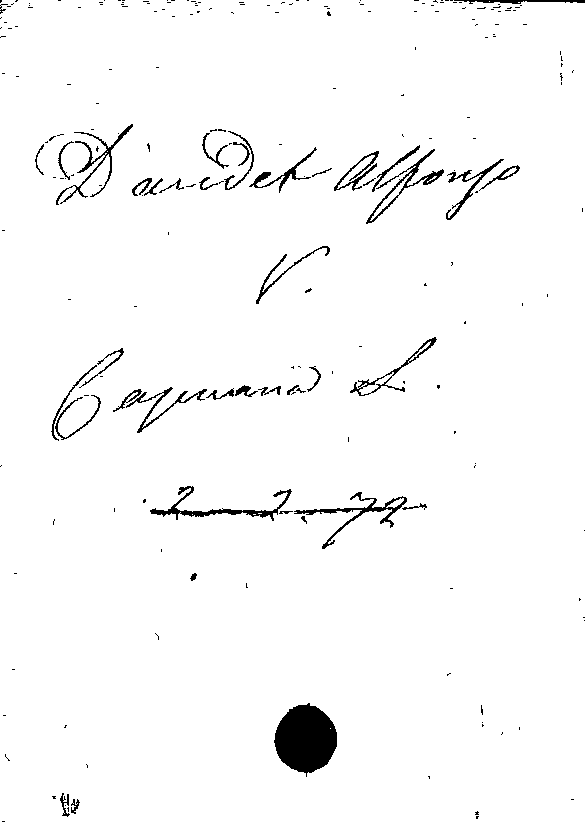 Daudet Alfons
V.
Capuana L.
2 2. 72